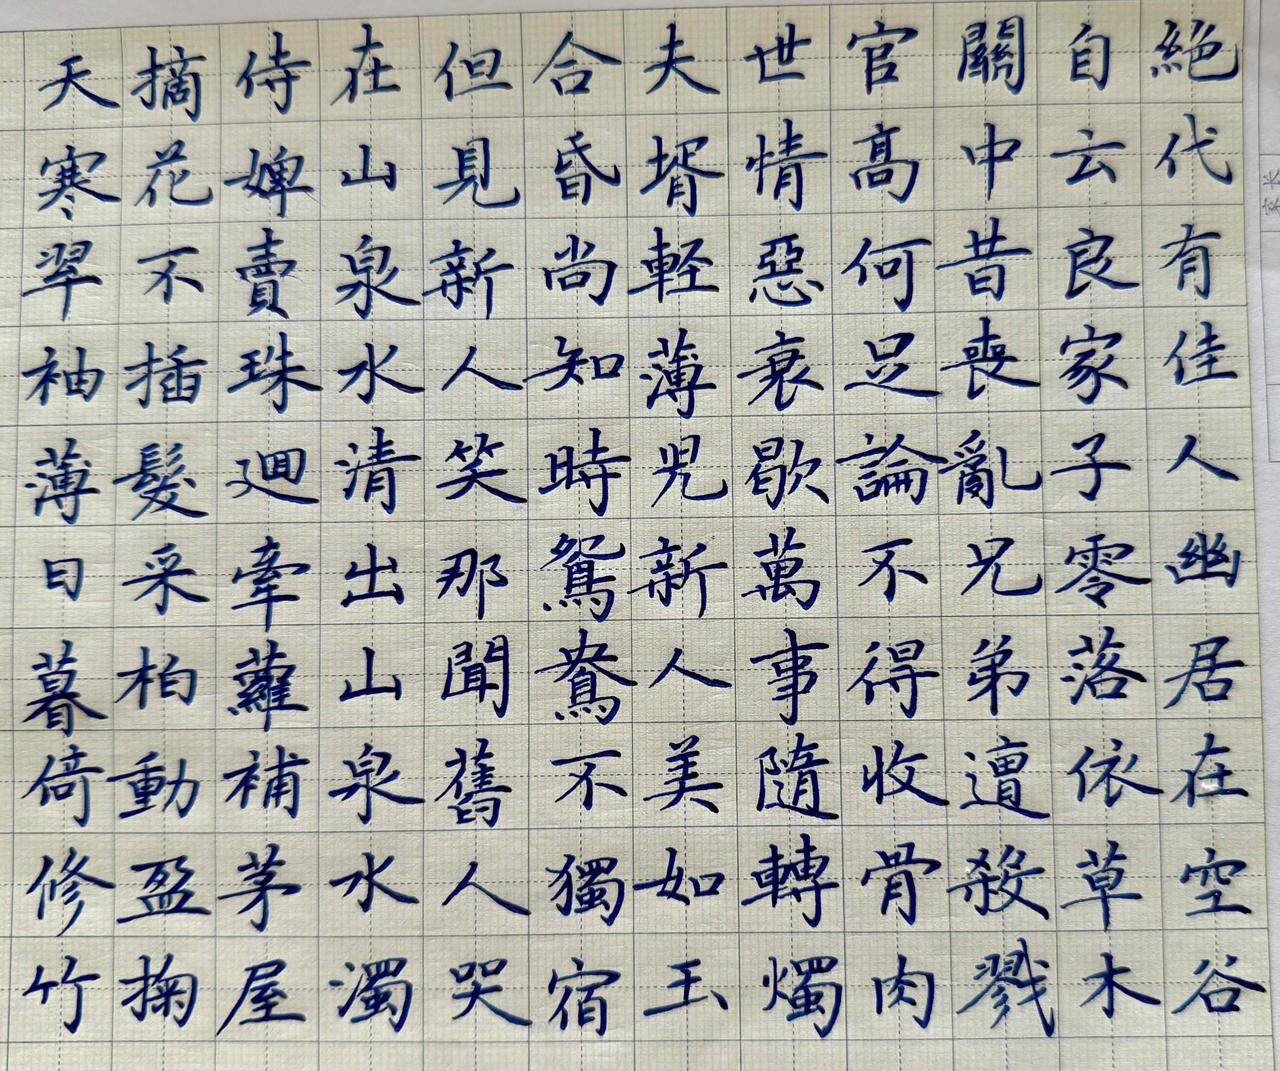 絕代有佳人幽居在空谷
自云良家子零落依草木
關中昔喪亂兄弟遭殺戮
官高何足論不得收骨肉
世情惡衰歇萬事隨轉燭
夫壻輕薄兒新人美如玉
合昏尚知時鴛鴦不獨宿
但見新人笑那聞舊人哭
在山泉水清出山泉水濁
侍婢賣珠廻牽蘿補茅屋
摘花不插髮采柏動盈掬
天寒翠袖薄日暮倚修竹
家长